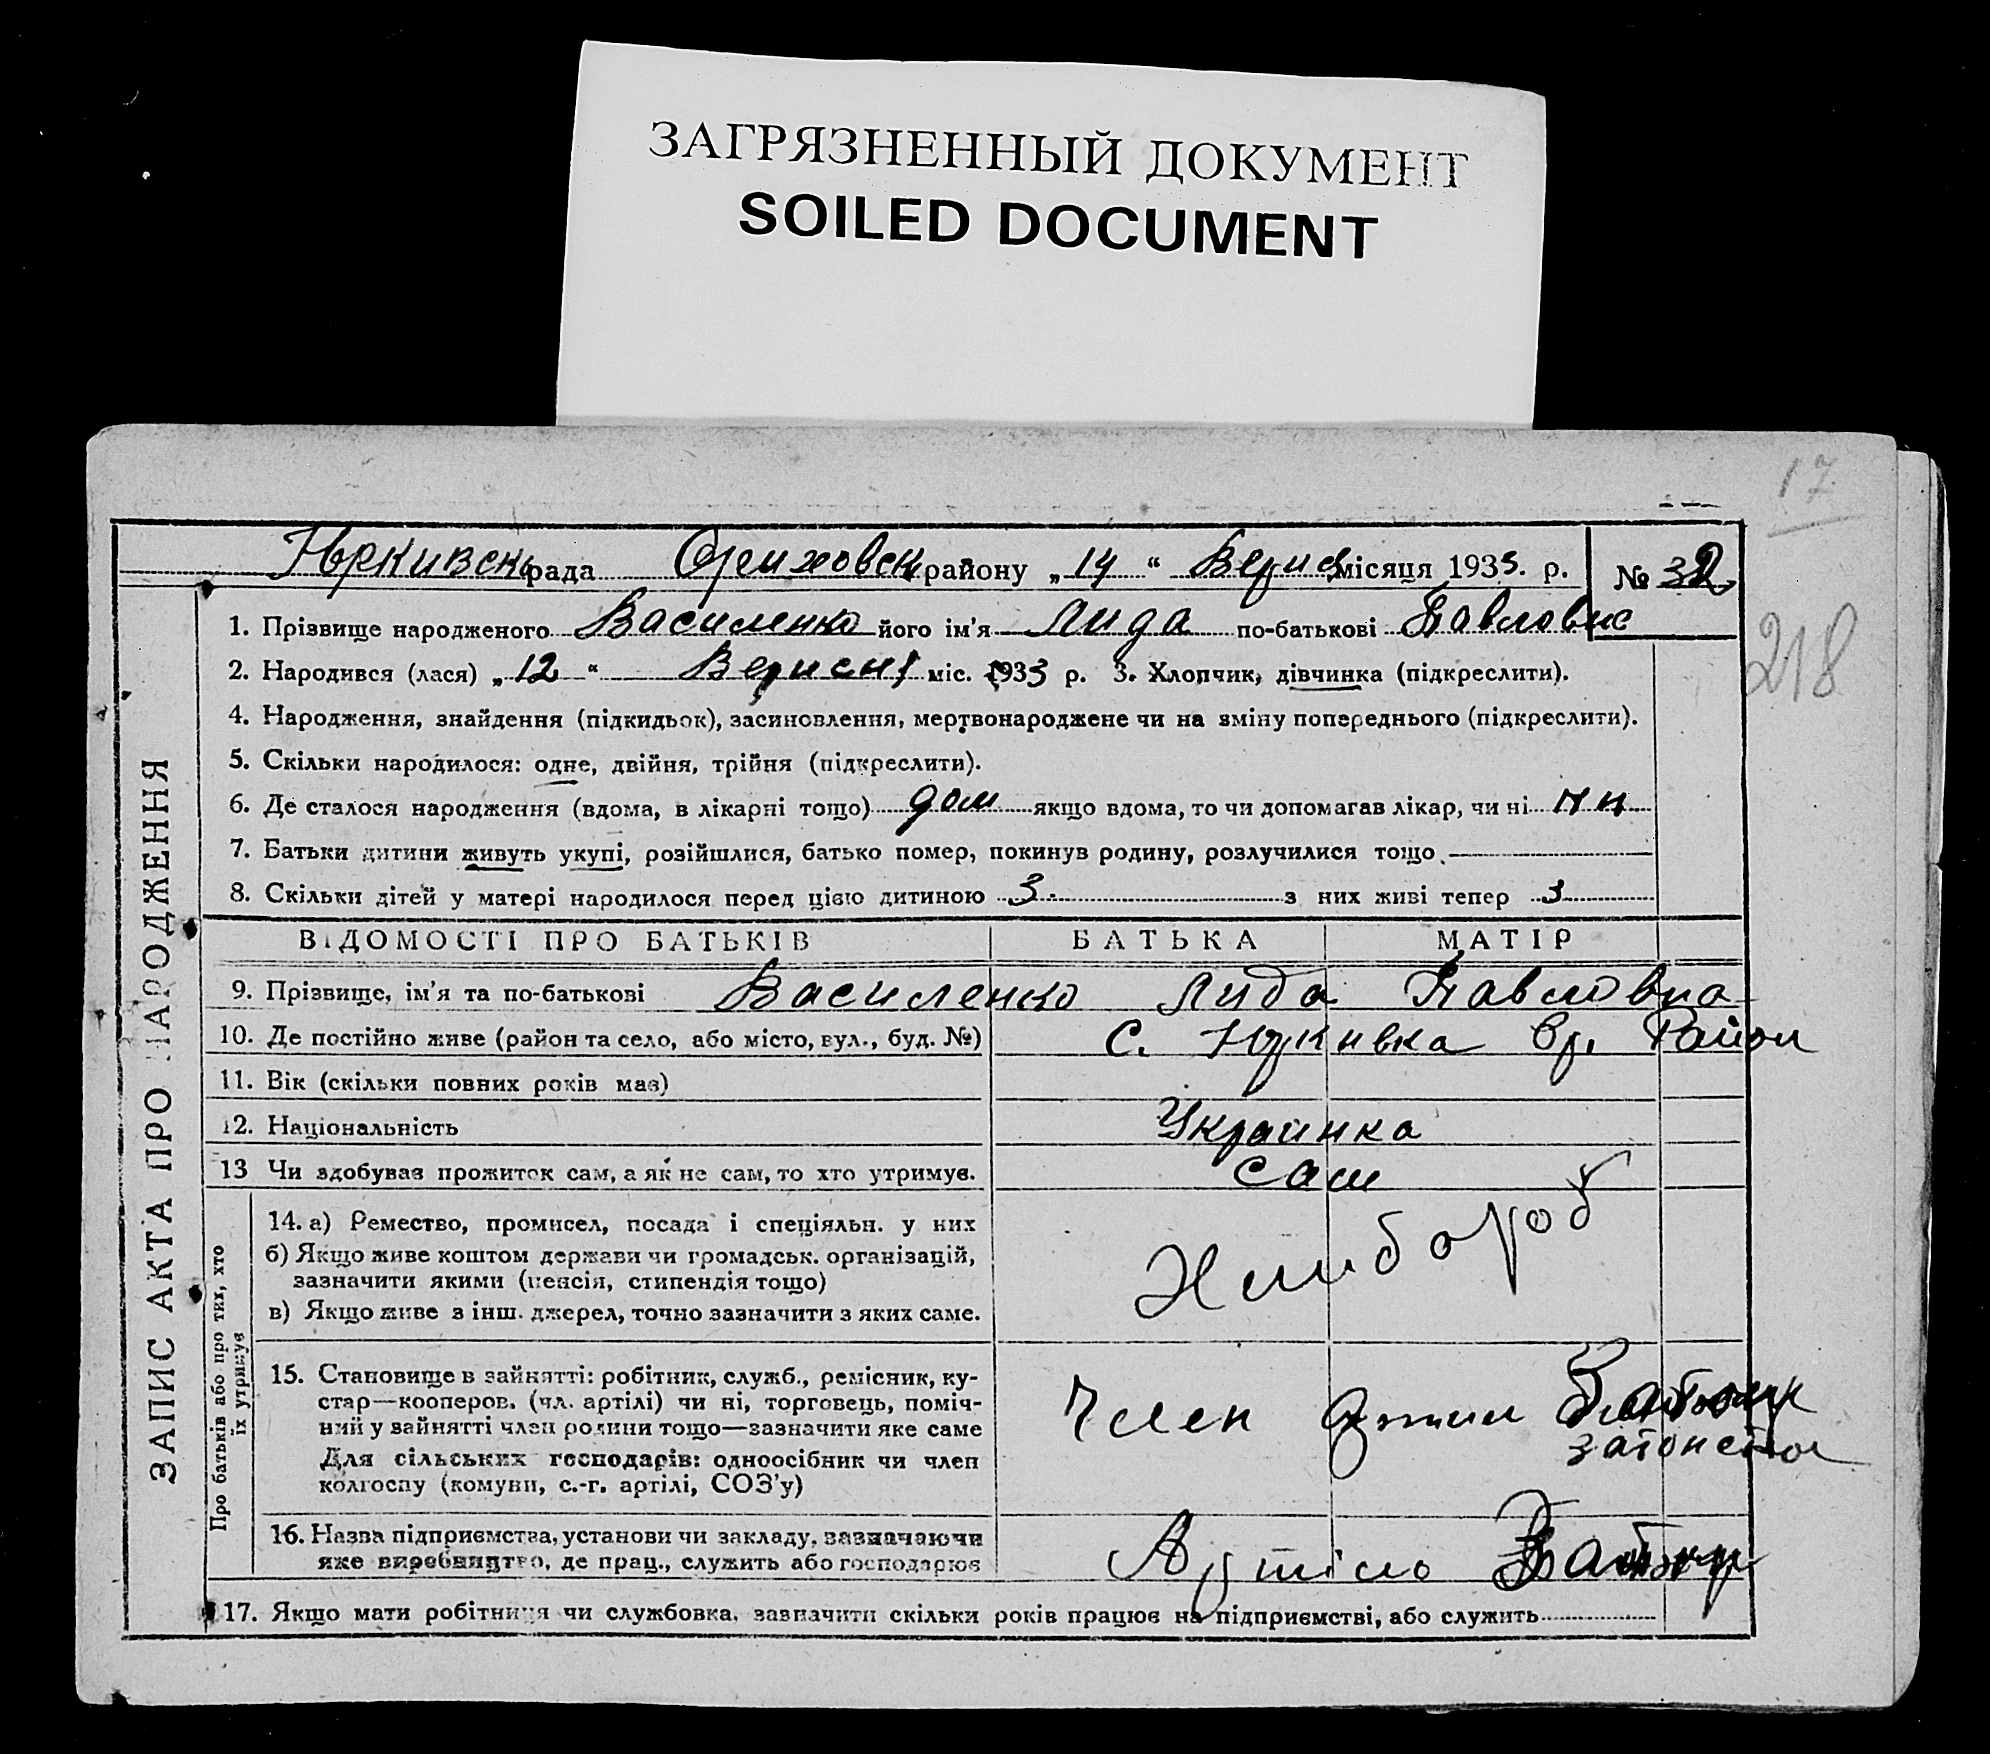 ЗАГРЯЗНЕННЫЙ ДОКУМЕНТ
SOILED DOCUMENT
17
218
Юркивськ рада Ориховськ району „ 14 “ Верис місяця 1933. р. № 32
1. Прізвище народженого Василенко його ім'я Лида по-батькові Павловне
2. Народився (лася) „ 12 “ Верисня міс. 1933 р. 3. Хлопчик, дівчинка (підкреслити).
4. Народження, знайдення (підкидьок), засиновлення, мертвонароджене чи на зміну попереднього (підкреслити).
5. Скільки народилося: одне, двійня, трійня (підкреслити).
6. Де сталося народження (вдома, в лікарні тощо) дом якщо вдома, то чи допомагав лікар, чи ні ни
7. Батьки дитини живуть укупі, розійшлися, батько помер, покинув родину, розлучилися тощо.
8. Скільки дітей у матері народилося перед цією дитиною 3. з них живі тепер 3
ЗАПИС АКТА ПРО НАРОДЖЕННЯ
ВІДОМОСТІ ПРО БАТЬКІВ БАТЬКА МАТІР
9. Прізвище, ім'я та по-батькові Василенко Лида Павловна
10. Де постійно живе (район та село, або місто, вул., буд. №) С. Юркивка Ор. Район
11. Вік (скільки повних років має)
12. Національність Украинка
13 Чи здобував прожиток сам, а як не сам, то хто утримує. Сам
Про батьків або про тих, хто
їх утримує
14. а) Ремество, промисел, посада і спеціяльн. у них
б) Якщо живе коштом держави чи громадськ. організацій,
зазначити якими (пенсія, стипендія тощо)
в) Якщо живе з інш. джерел, точно зазначити з яких саме.
Хлибороб
15. Становище в зайнятті: робітник, служб., ремісник, ку-
стар—кооперов. (чл. артілі) чи ні, торговець, поміч-
ний у зайнятті член родини тощо—зазначити яке саме
Для сільських господарів: одноосібник чи член
колгоспу (комуни, с.-г. артілі, СОЗ'у)
Член
16. Назва підприємства, установи чи закладу, зазначаючи
яке виробництво, де прац., служить або господарює
Артіль
17. Якщо мати робітниця чи службовка, зазначити скільки років працює на підприємстві, або служить